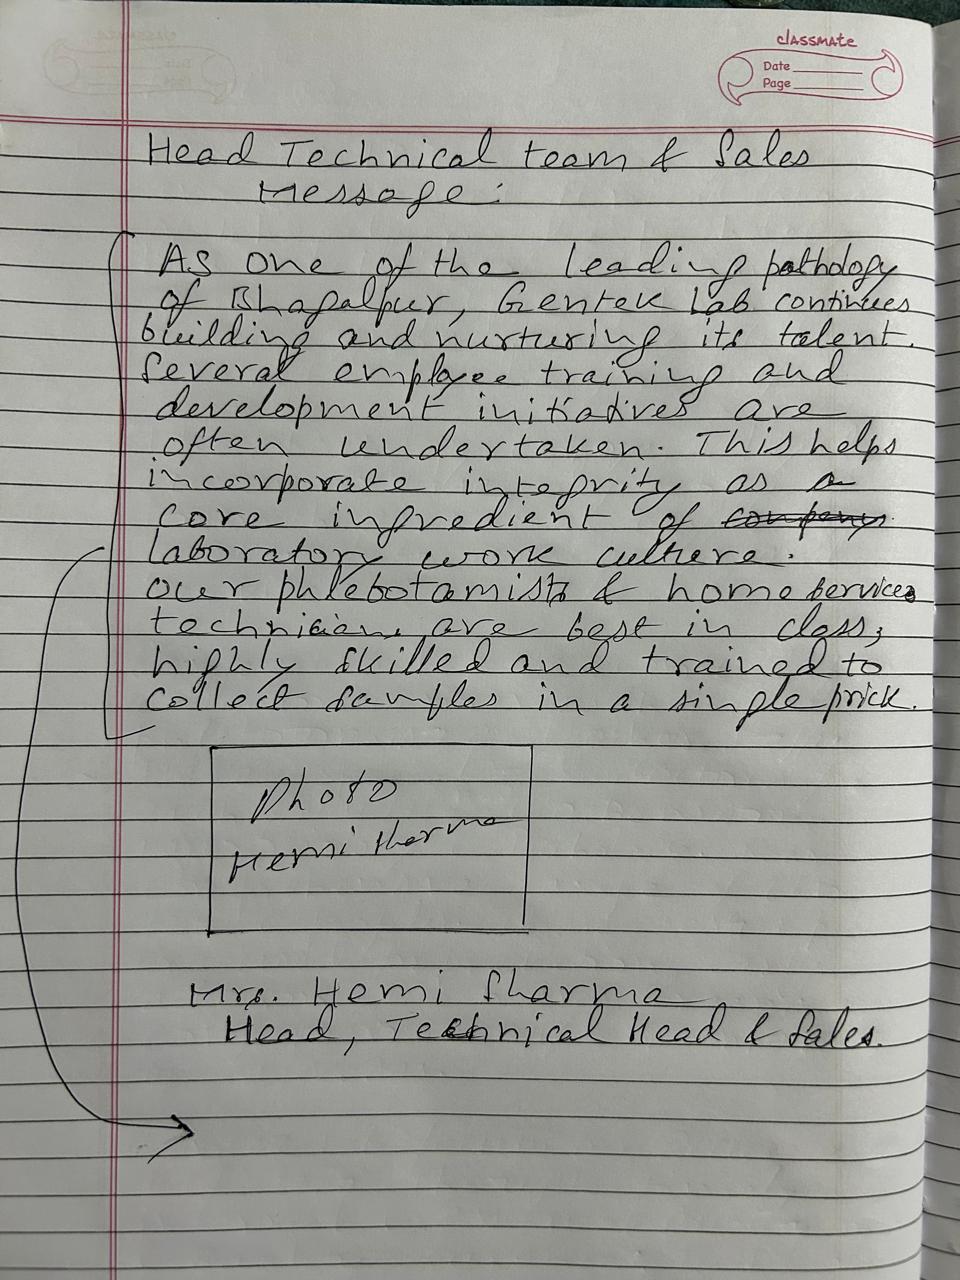 classmate
Date
Page
Head Technical team & Sales
Message:
As one of the leading pathology
of Bhagalpur, Gentek Lab continues
building and nurturing its talent.
Several employee training and
development initiatives are
often undertaken. This helps
incorporate integrity as a
core ingredient of company
laboratory work culture.
Our phlebotamists & home services
technician are best in class,
highly skilled and trained to
collect samples in a single prick.
Photo
Hemi Sharma
Mrs. Hemi Sharma
Head, Technical Head & Sales.